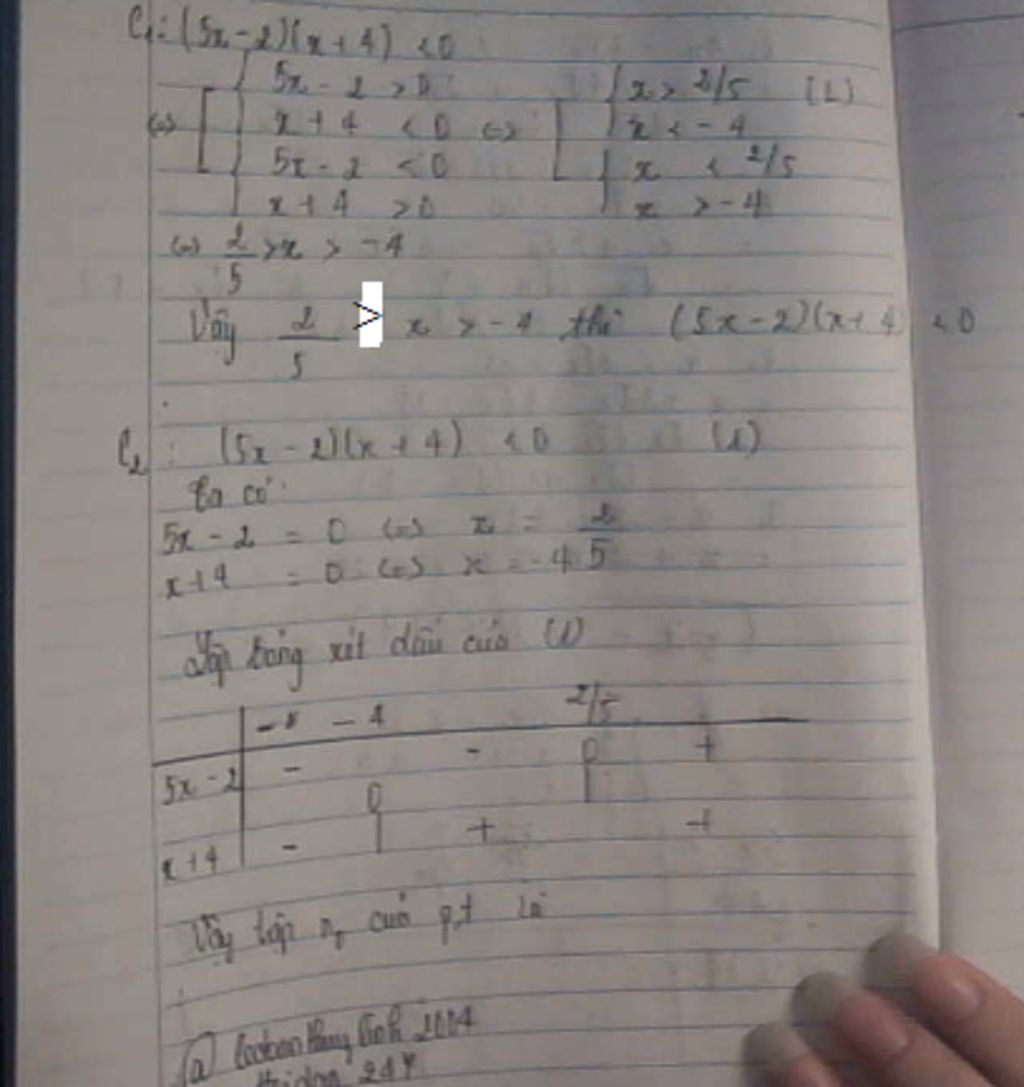 C1: (5x-2)(x+4) <0
5x - 2 >0 x > 2/5 (L)
<=> x + 4 <0 <=> x < -4
5x - 2 <0 x < 2/5
x + 4 >0 x > -4
<=> 2/5 > x > -4
Vậy 2/5 > x > -4 thì (5x-2)(x+4) <0
C2: (5x-2)(x+4) <0 (1)
Ta có:
5x - 2 = 0 <=> x = 2/5
x+4 = 0 <=> x = -4
Lập bảng xét dấu của (1)
-4 2/5
5x - 2 - - 0 +
x+4 - 0 + +
Vậy tập n0 của pt là
2004